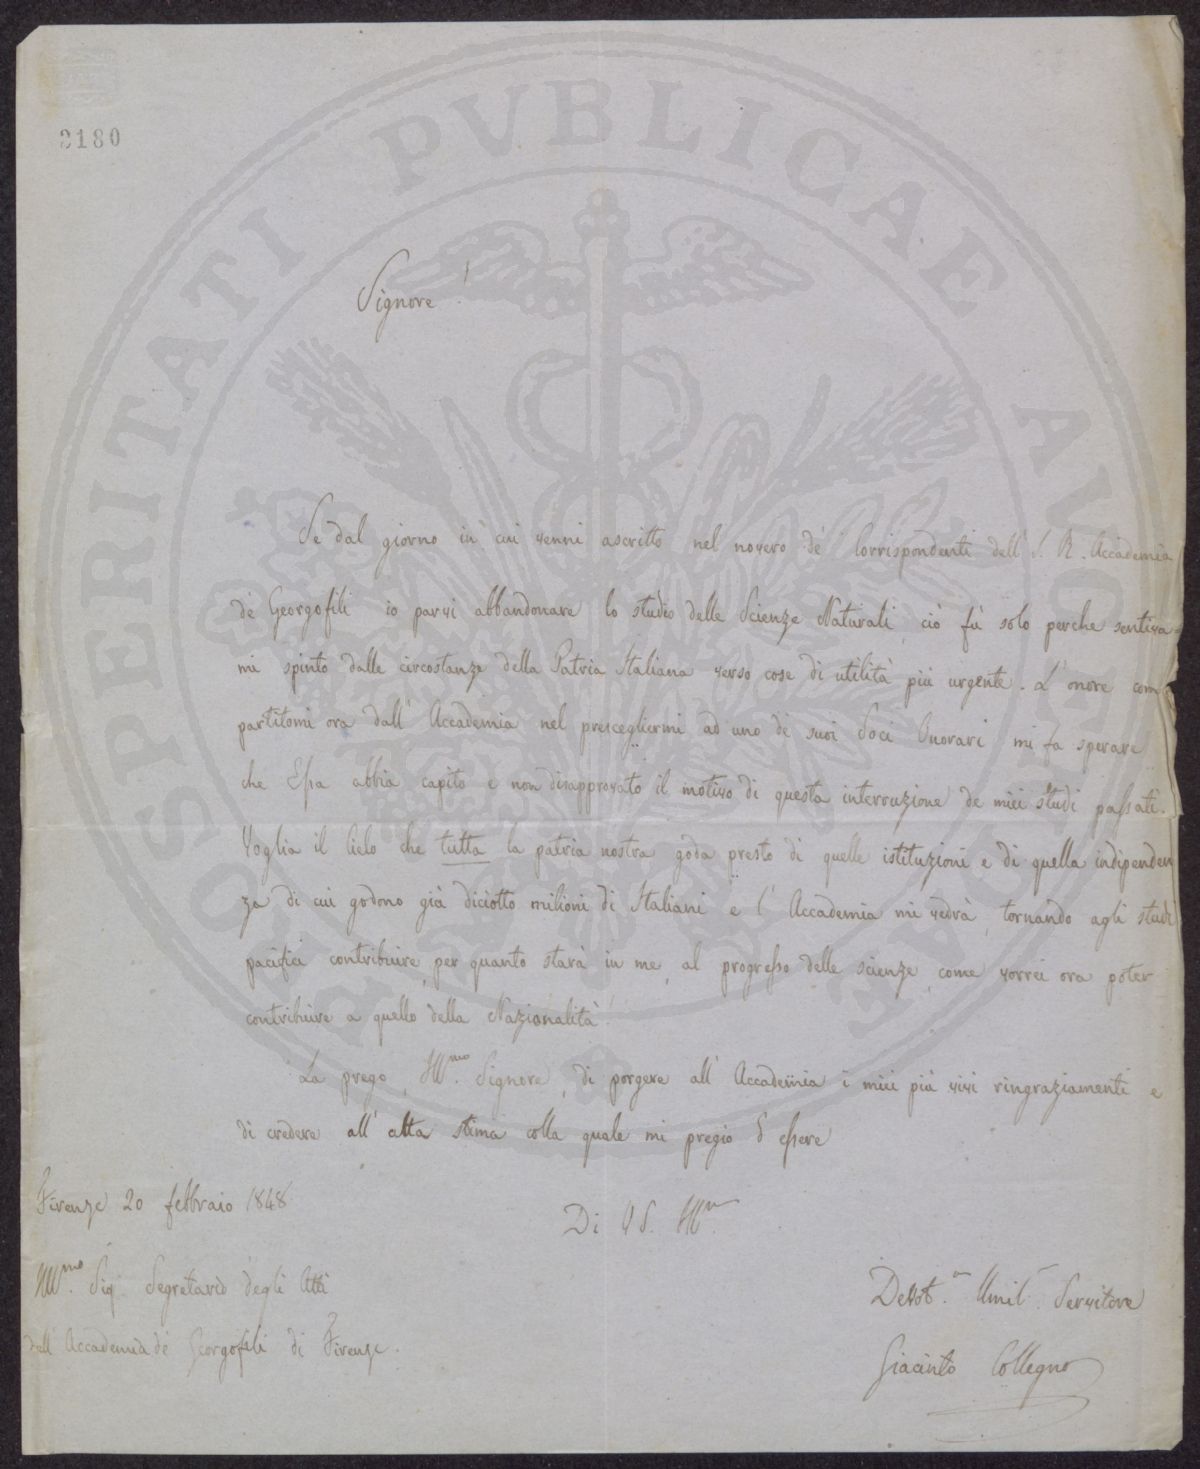 2180
PROSPERITATI PVBLICAE AVGENDAE
Signore!
Se dal giorno in cui venni ascritto nel novero de' Corrispondenti dell' I. R. Accademia
de' Georgofili io parvi abbandonare lo studio delle Scienze Naturali, ciò fù solo perche sentiva=
mi spinto dalle circostanze della Patria Italiana verso cose di utilità più urgente. L'onore com=
partitomi ora dall' Accademia nel prescegliermi ad uno de' suoi Soci Onorari mi fa sperare
che Essa abbia capito e non disapprovato il motivo di questa interruzione de miei studi passati.
Voglia il Cielo che tutta la patria nostra goda presto di quelle istituzioni e di quella indipenden
za di cui godono già diciotto milioni di Italiani e l' Accademia mi vedrà, tornando agli studi
pacifici contribuire, per quanto starà in me, al progresso delle scienze, come vorrei ora poter
contribuire a quello della Nazionalità!
La prego, Illmo. Signore, di porgere all' Accademia i miei più vivi ringraziamenti e
di credere all' alta stima colla quale mi pregio d'essere
Firenze 20 febbraio 1848
Di V S. Illma.
Illmo. Sig. Segretario degli Atti
dell' Accademia de' Georgofili di Firenze.
Devot.mo Umil. Servitore
Giacinto Collegno